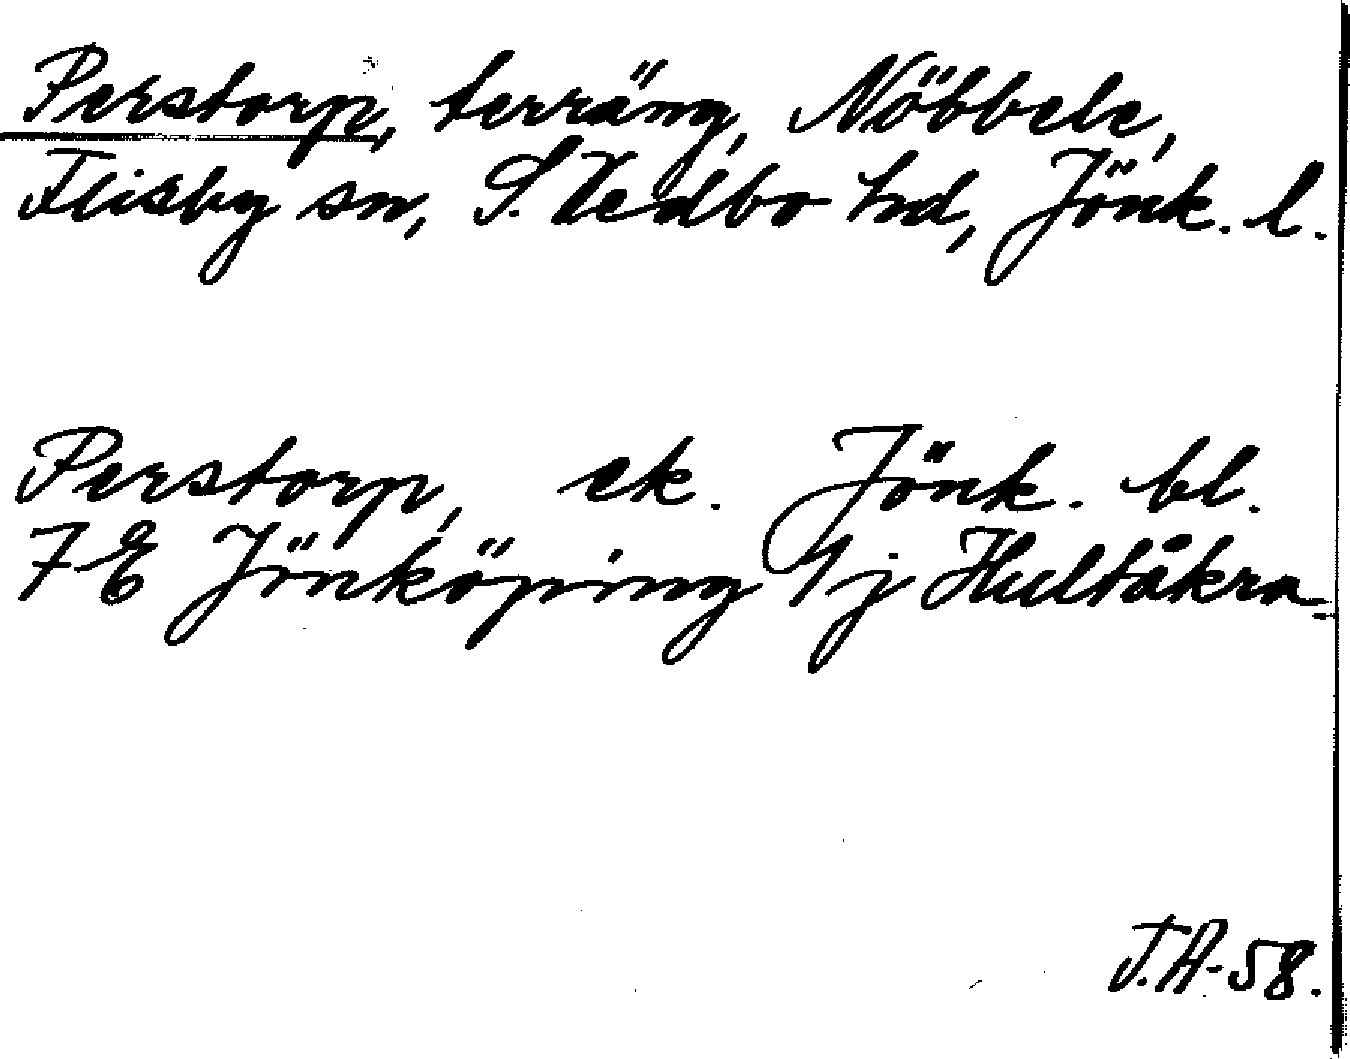 Perstorp, terräng, Nöbbele,
Flisby sn, S. Vedbo hd, Jönk. l.
Perstorp, ek. Jönk. bl.
7E Jönköping 1j Hultåkra
J.A-58.